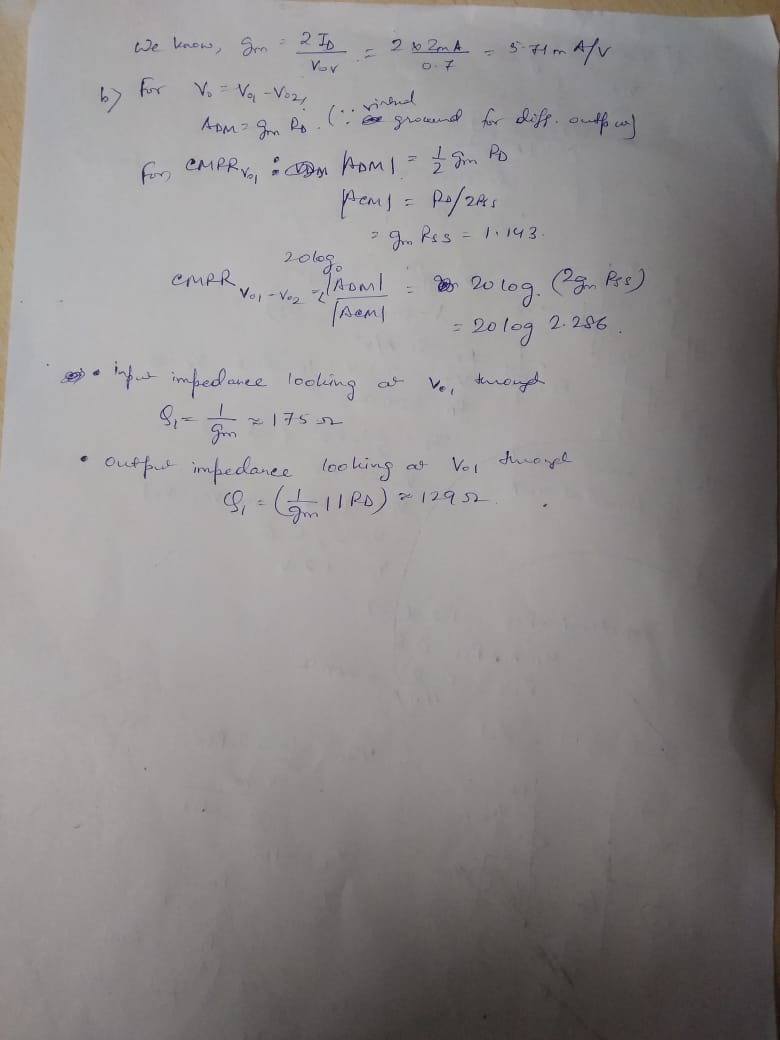 We know, gm = 2 ID / Vov = 2 x 2mA / 0.7 = 5.71 m A/V
b) For Vo = Vo1 - Vo2,
ADM = gm RD. (∵ virtual ground for diff. output)
For, CMRR Vo1 : |ADM| = 1/2 gm RD
|ACM| = RD/2RSS
= gm RSS = 1.143.
CMRR Vo1 - Vo2 = 20 log |ADM| / |ACM| = 20 log. (2gm RSS)
= 20 log 2.286.
• input impedance looking at Vo1 through
Q1 = 1/gm ≈ 175 Ω
• output impedance looking at Vo1 through
Q1 = (1/gm || RD) ≈ 129 Ω.